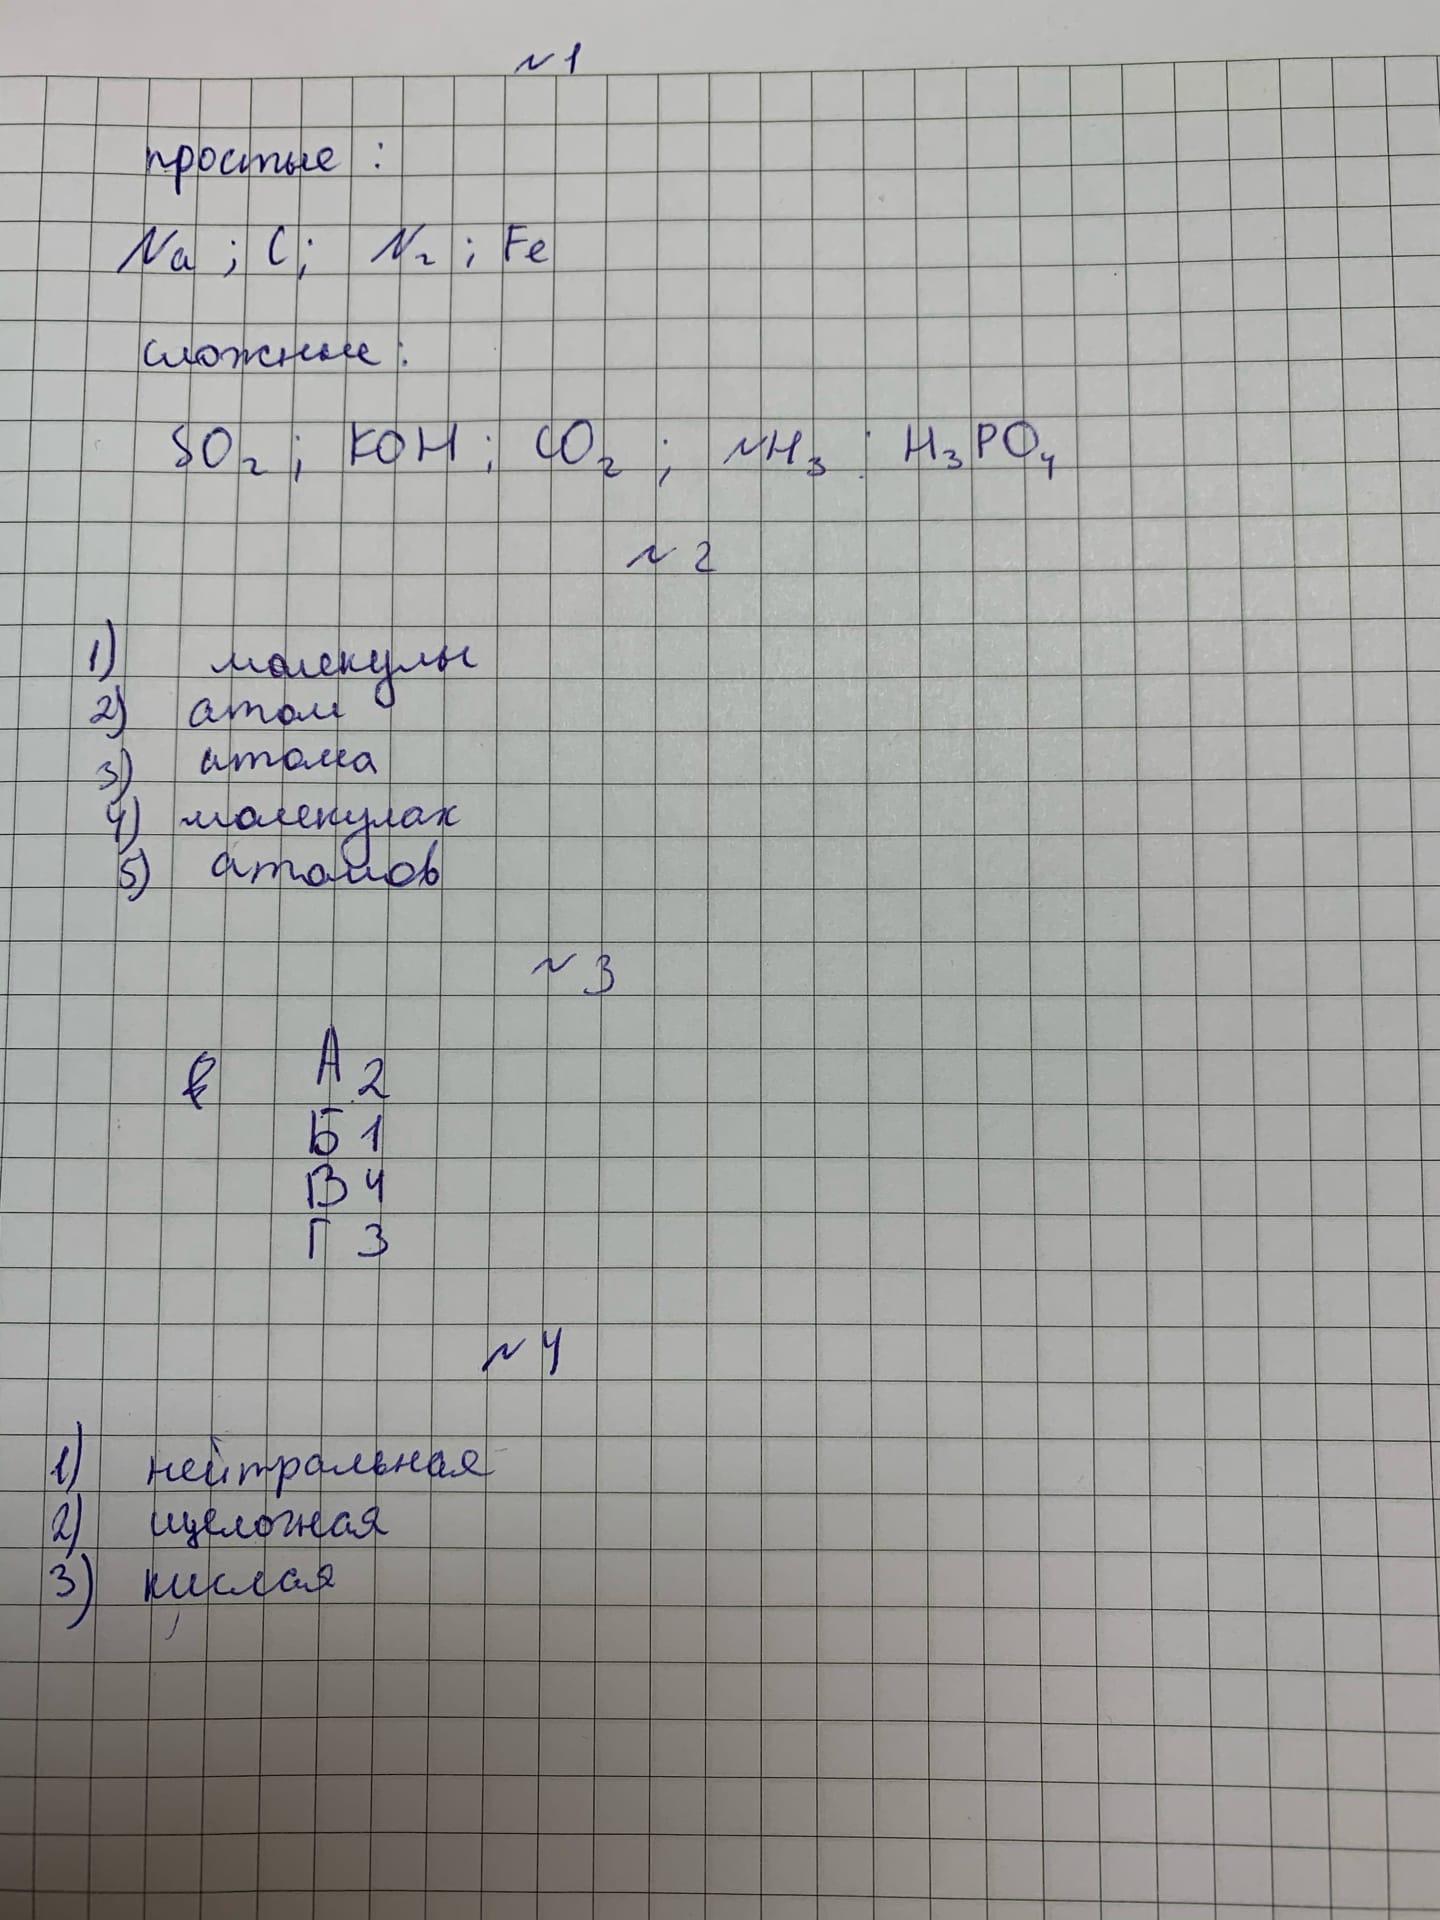 №1
простые:
Na; C; N₂; Fe
сложные:
SO₂; KOH; CO₂; NH₃; H₃PO₄
№2
1) молекулы
2) атом
3) атома
4) молекулах
5) атомов
№3
А 2
Б 1
В 4
Г 3
№4
1) нейтральная
2) щелочная
3) кислая